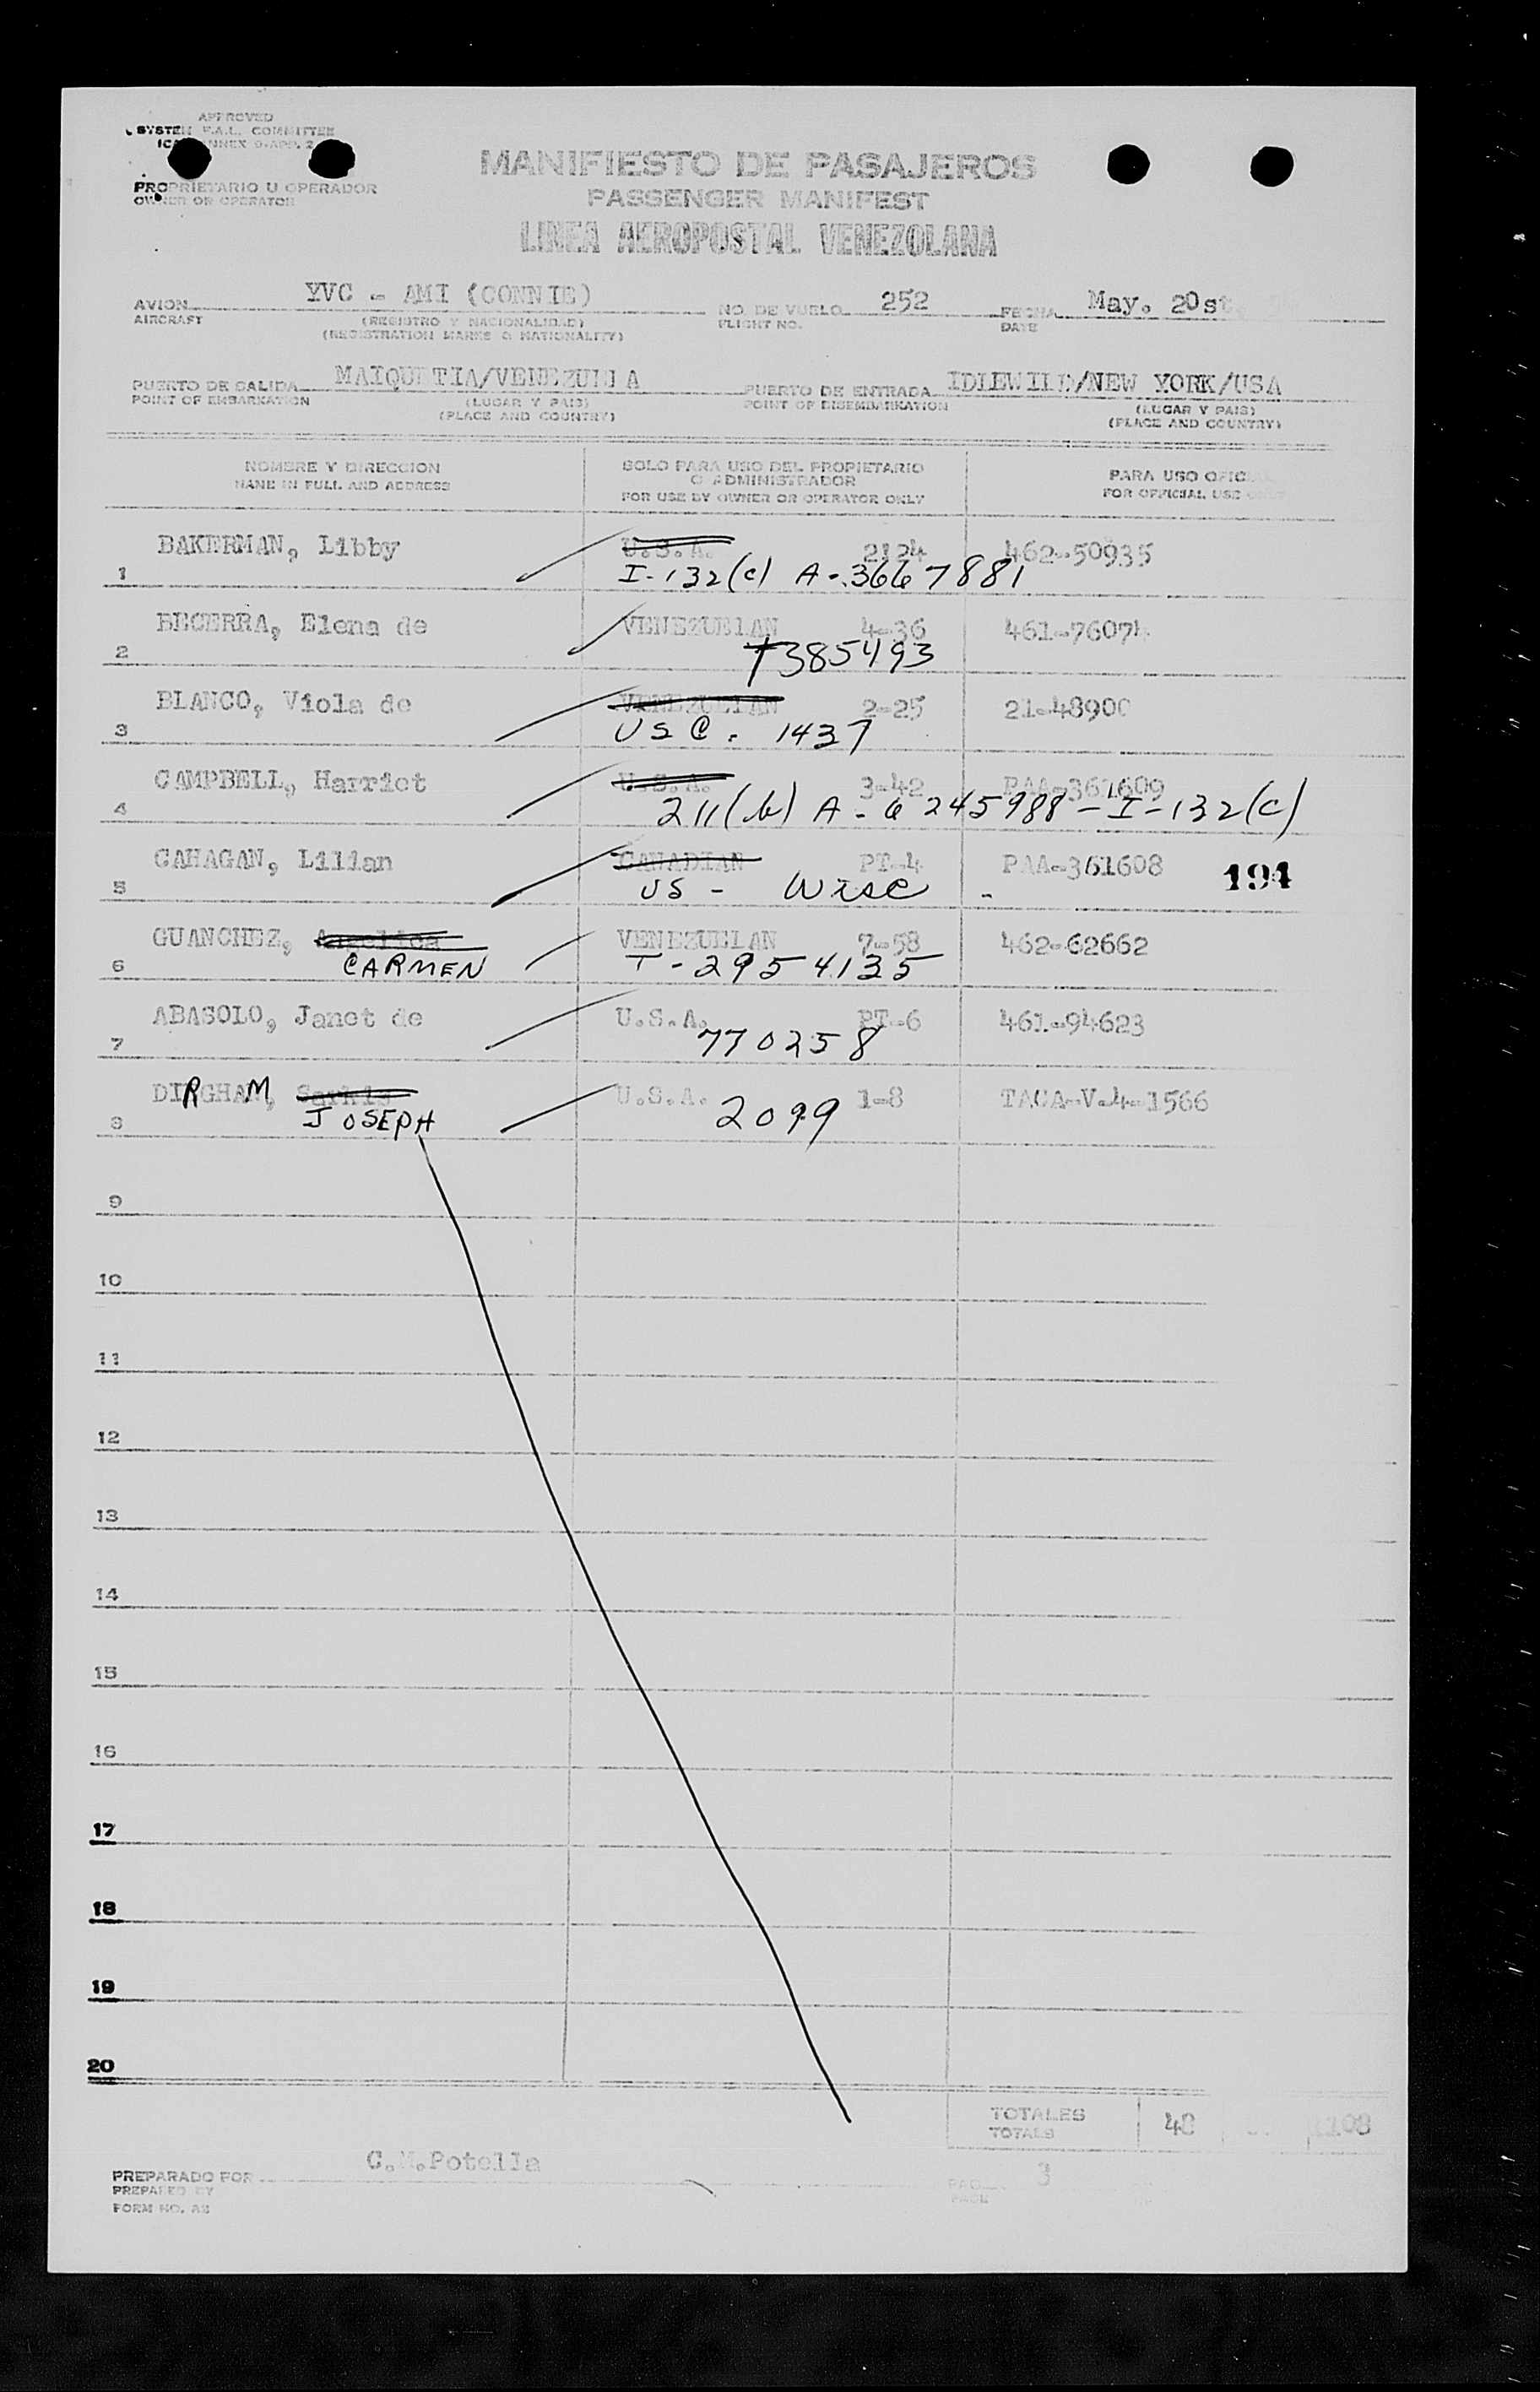 APPROVED
SYSTEM F.A.L. COMMITTEE
ICAO ANNEX 9-APP. 2
PROPRIETARIO U OPERADOR
OWNER OR OPERATOR
MANIFIESTO DE PASAJEROS
PASSENGER MANIFEST
LINEA AEROPOSTAL VENEZOLANA
AVION YVC - AMI (CONNIE) NO. DE VUELO 252 FECHA May. 20st.
AIRCRAFT (REGISTRO Y NACIONALIDAD) FLIGHT NO. DATE
(REGISTRATION MARKS & NATIONALITY)
PUERTO DE SALIDA MAIQUETIA/VENEZUELA PUERTO DE ENTRADA IDLEWILD/NEW YORK/USA
POINT OF EMBARKATION (LUGAR Y PAIS) POINT OF DISEMBARKATION (LUGAR Y PAIS)
(PLACE AND COUNTRY) (PLACE AND COUNTRY)
NOMBRE Y DIRECCION SOLO PARA USO DEL PROPIETARIO PARA USO OFICIAL
NAME IN FULL AND ADDRESS O ADMINISTRADOR FOR OFFICIAL USE ONLY
FOR USE BY OWNER OR OPERATOR ONLY
BAKERMAN, Libby U.S.A. 2124 462-50935
1 I-132(c) A-3667881
BECERRA, Elena de VENEZUELAN 4-36 461-76074
2 T385493
BLANCO, Viola de VENEZUELAN 2-25 21-48900
3 USC. 1437
CAMPBELL, Harriet U.S.A. 3-42 PAA-361609
4 211(b) A-6245988-I-132(c)
GAHAGAN, Lilian CANADIAN PT-4 PAA-361608 194
5 US - Wisc -
GUANCHEZ, Angelica VENEZUELAN 7-58 462-62662
6 CARMEN T-2954135
ABASOLO, Janet de U.S.A. PT-6 461-94623
7 770258
DIRGHAM, Sarkis U.S.A. 1-8 TACA-V-4-1566
8 JOSEPH 2099
9
10
11
12
13
14
15
16
17
18
19
20
TOTALES 48
TOTALS
C.M.Potella
PREPARADO POR PAG. 3
PREPARED BY PAGE
FORM NO. A2